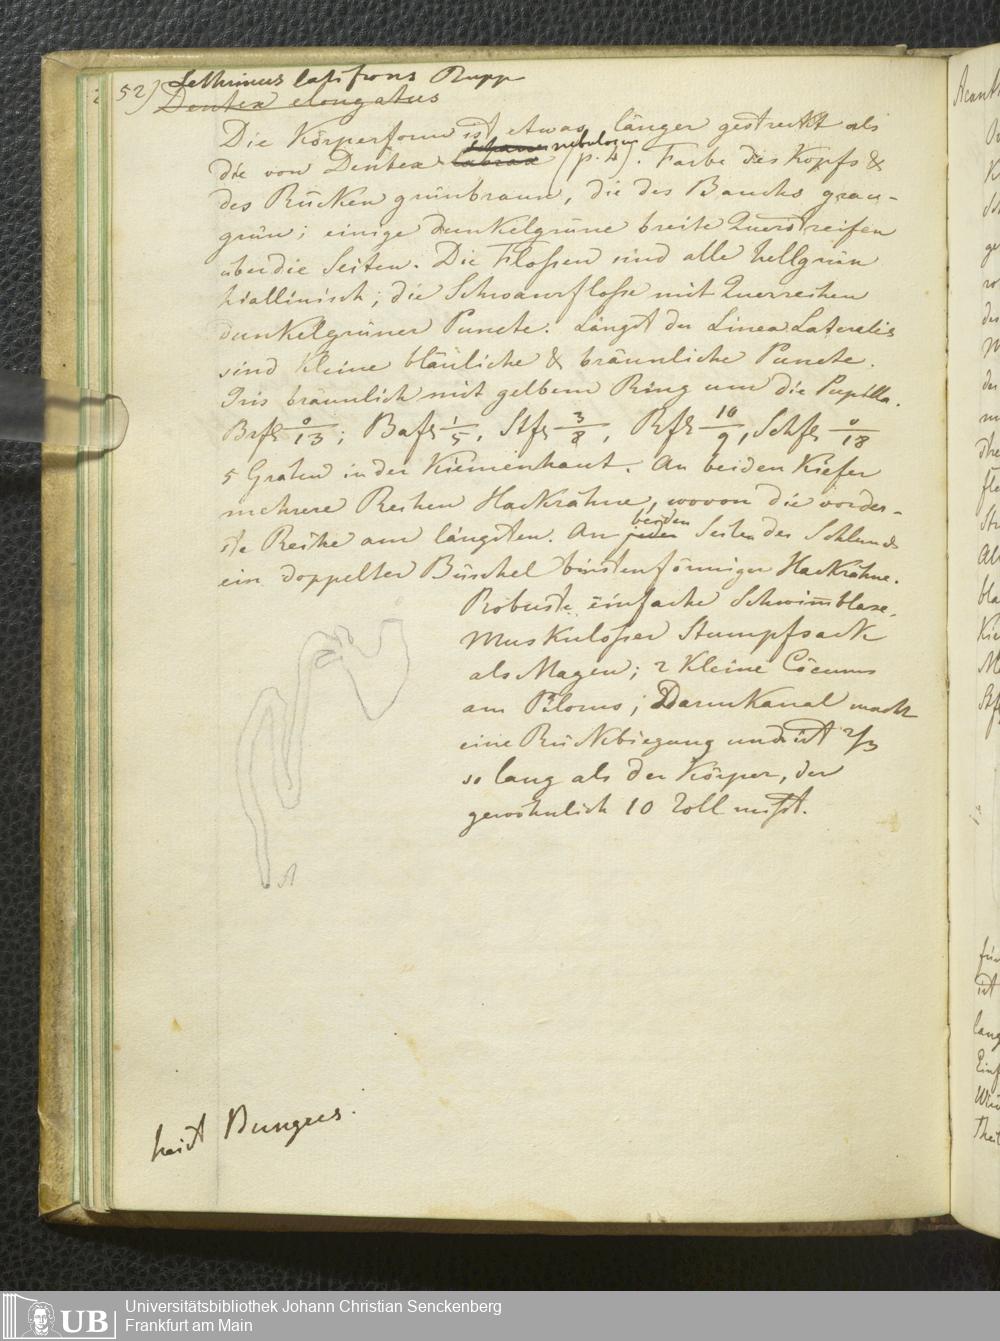 52) Lethrinus latifrons Rupp
Dentex elongatus
Die Körperform ist etwas länger gestreckt als
die von Dentex nebulosus (p. 4). Farbe des Kopfs &
des Rücken grünbraun, die des Bauchs grau-
grün; einige dunkelgrüne breite Querstreifen
über die Seiten. Die Floßen sind alle hellgrün
hiallinisch; die Schwanzfloße mit Querreihen
dunkelgrüner Puncte. Längst der Linea Lateralis
sind kleine bläuliche & bräunliche Puncte.
Iris bräunlich mit gelbem Ring um die Pupilla.
Brfl 0/13; Bafl 1/5, Stfl 3/8, Rfl 10/9, Schfl 0/18
5 Grähten in der Kiemenhaut. An beiden Kiefer
mehrere Reihen Hackzähne, wovon die vorder-
ste Reihe am längsten. An jeden beiden Seiten des Schlunds
ein doppelter Büschel bürstenförmiger Hackzähne.
Robuste einfache Schwimblase.
Muskuloßer Stumpfsack
als Magen; 2 kleine Cöcums
am Pilorus; Darmkanal macht
eine Rückbiegung und ist 2/3
so lang als der Körper, der
gewöhnlich 10 Zoll mißt.
A
heist Bungus.
UB
Universitätsbibliothek Johann Christian Senckenberg
Frankfurt am Main